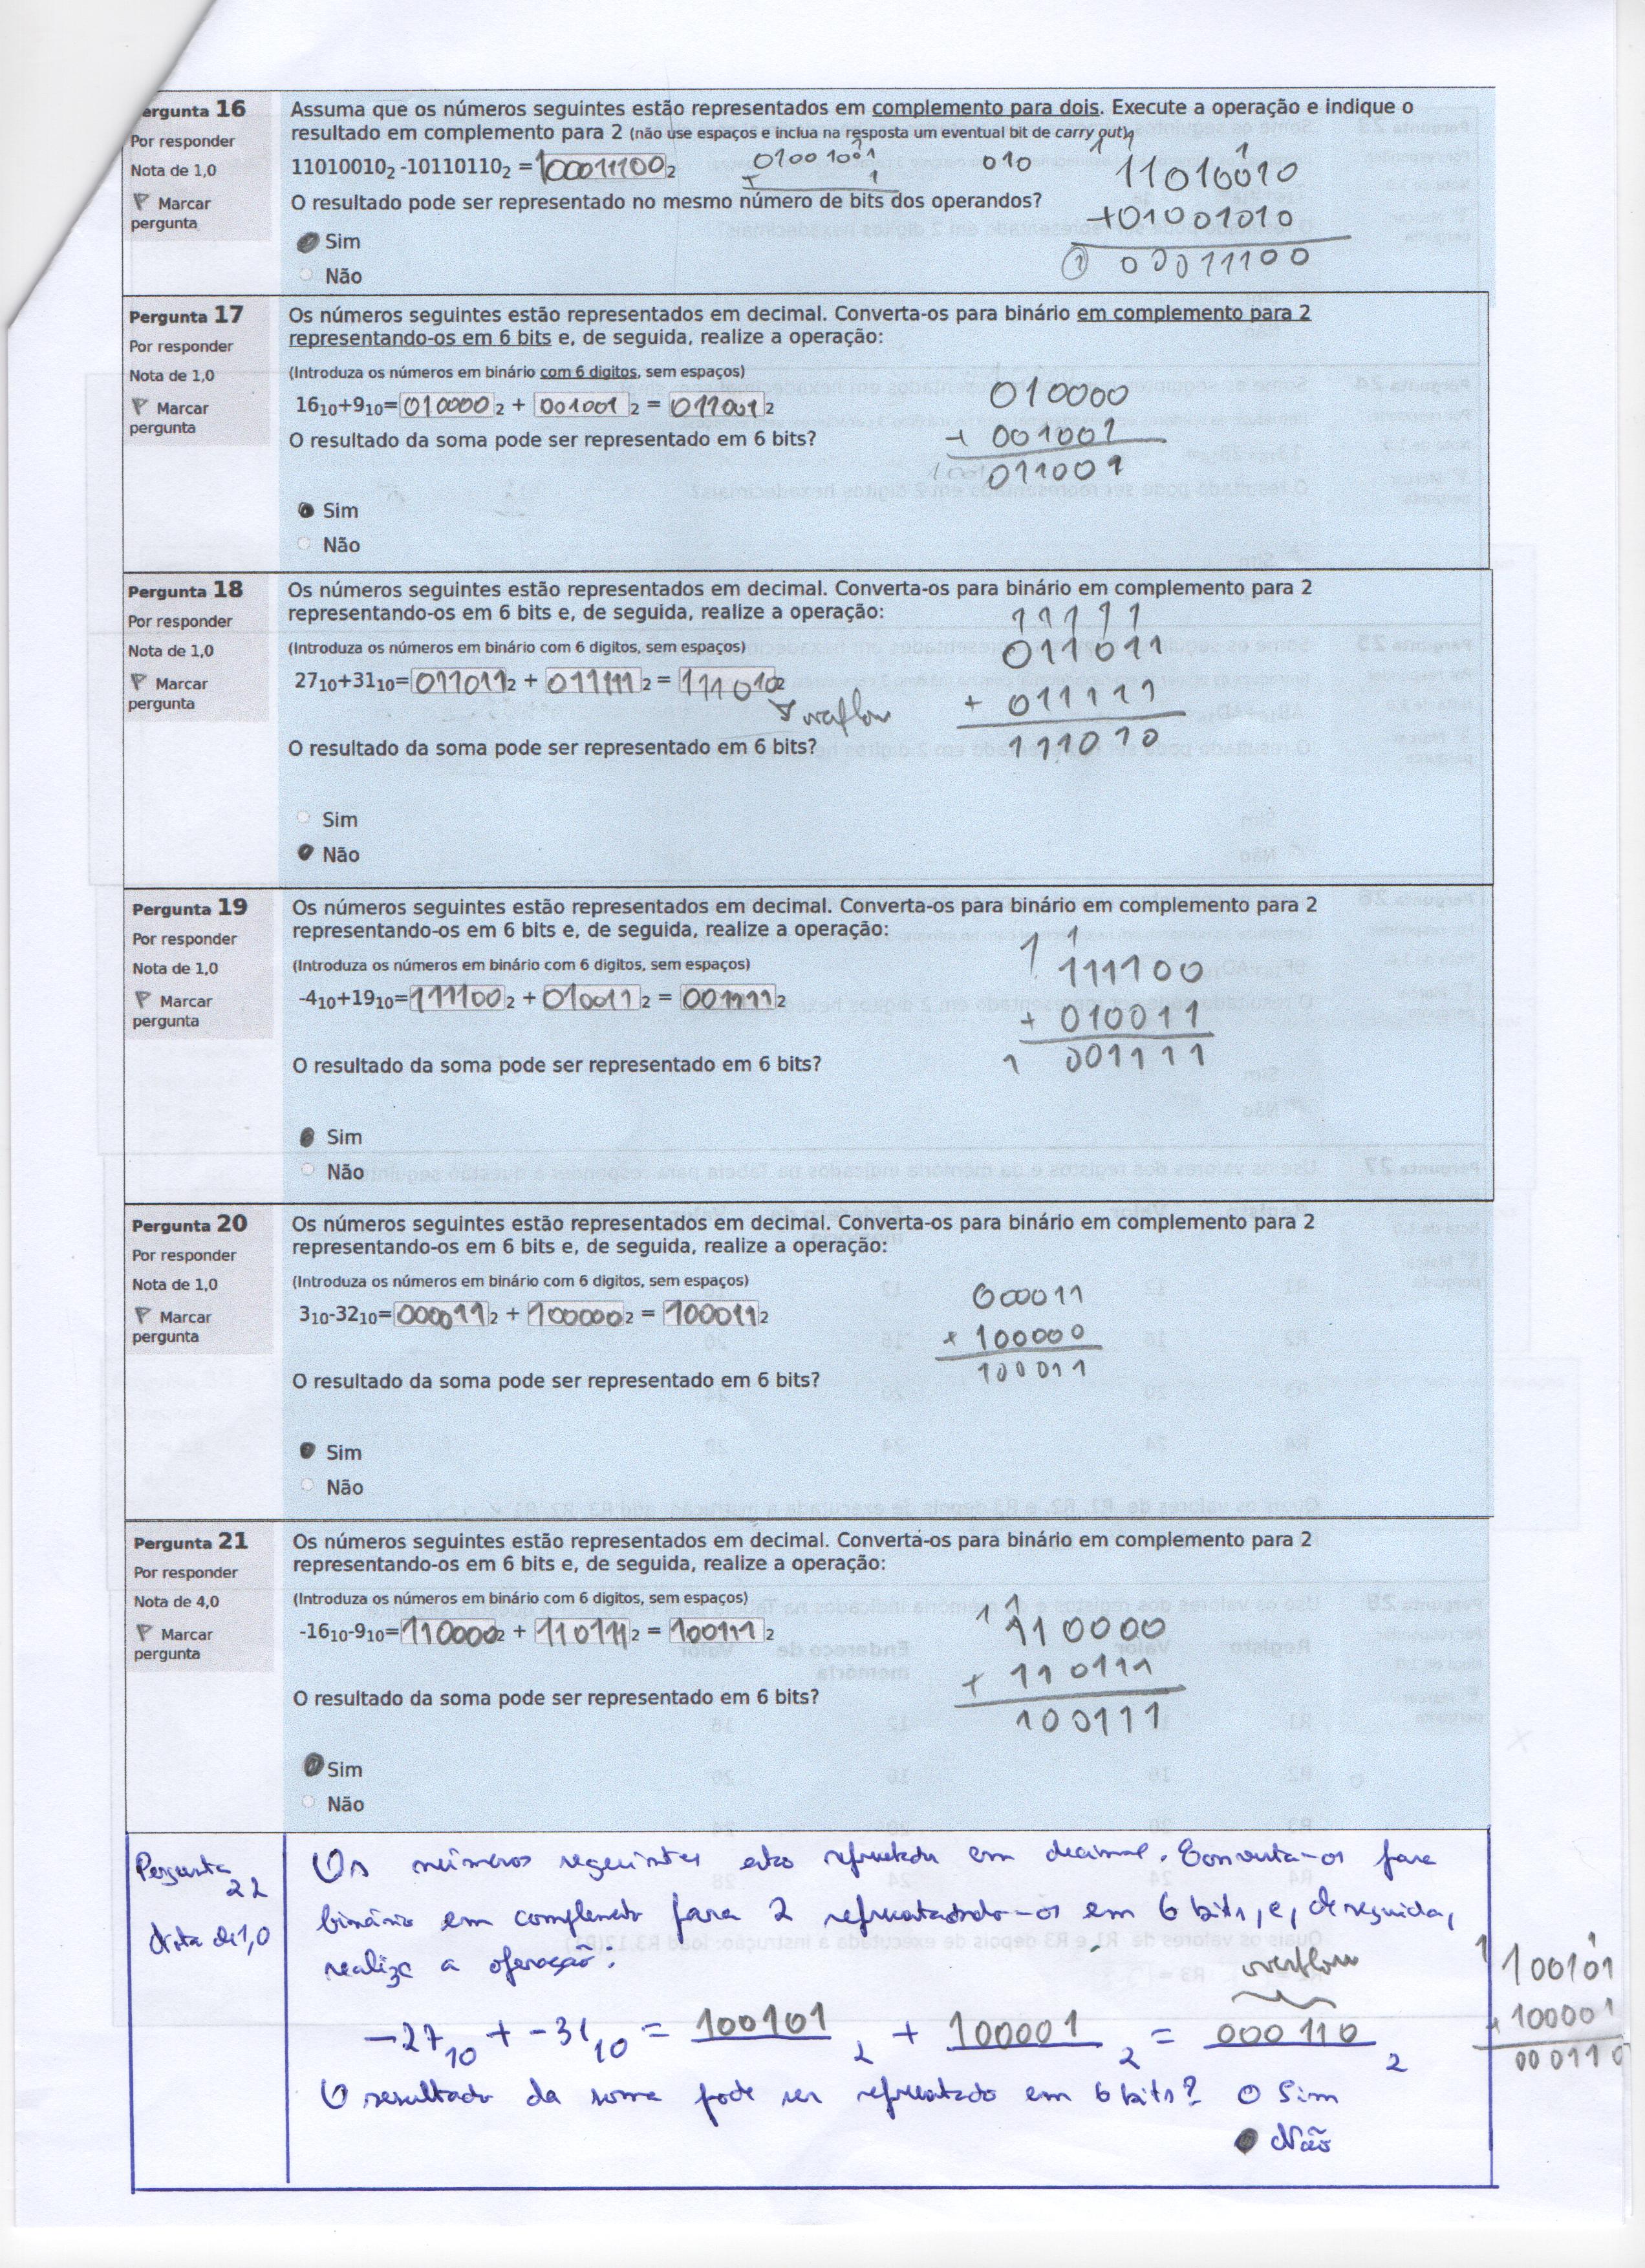 Pergunta 16
Por responder
Nota de 1,0
Marcar pergunta
Assuma que os números seguintes estão representados em complemento para dois. Execute a operação e indique o
resultado em complemento para 2 (não use espaços e inclua na resposta um eventual bit de carry out)
11010010₂ -10110110₂ = 100011100 ₂
01001001
+ 1
010
1 1
11010010
+01001010
1 00011100
O resultado pode ser representado no mesmo número de bits dos operandos?
Sim
Não
Pergunta 17
Por responder
Nota de 1,0
Marcar pergunta
Os números seguintes estão representados em decimal. Converta-os para binário em complemento para 2
representando-os em 6 bits e, de seguida, realize a operação:
(Introduza os números em binário com 6 digitos, sem espaços)
16₁₀+9₁₀= 010000 ₂ + 001001 ₂ = 011001 ₂
010000
+ 001001
011001
O resultado da soma pode ser representado em 6 bits?
Sim
Não
Pergunta 18
Por responder
Nota de 1,0
Marcar pergunta
Os números seguintes estão representados em decimal. Converta-os para binário em complemento para 2
representando-os em 6 bits e, de seguida, realize a operação:
(Introduza os números em binário com 6 digitos, sem espaços)
27₁₀+31₁₀= 011011 ₂ + 011111 ₂ = 111010 ₂
overflow
11111
011011
+ 011111
111010
O resultado da soma pode ser representado em 6 bits?
Sim
Não
Pergunta 19
Por responder
Nota de 1,0
Marcar pergunta
Os números seguintes estão representados em decimal. Converta-os para binário em complemento para 2
representando-os em 6 bits e, de seguida, realize a operação:
(Introduza os números em binário com 6 digitos, sem espaços)
-4₁₀+19₁₀= 111100 ₂ + 010011 ₂ = 001111 ₂
1 1
111100
+ 010011
1 001111
O resultado da soma pode ser representado em 6 bits?
Sim
Não
Pergunta 20
Por responder
Nota de 1,0
Marcar pergunta
Os números seguintes estão representados em decimal. Converta-os para binário em complemento para 2
representando-os em 6 bits e, de seguida, realize a operação:
(Introduza os números em binário com 6 digitos, sem espaços)
3₁₀-32₁₀= 000011 ₂ + 100000 ₂ = 100011 ₂
000011
+ 100000
100011
O resultado da soma pode ser representado em 6 bits?
Sim
Não
Pergunta 21
Por responder
Nota de 4,0
Marcar pergunta
Os números seguintes estão representados em decimal. Converta-os para binário em complemento para 2
representando-os em 6 bits e, de seguida, realize a operação:
(Introduza os números em binário com 6 digitos, sem espaços)
-16₁₀-9₁₀= 110000 ₂ + 110111 ₂ = 100111 ₂
1 1
110000
+ 110111
100111
O resultado da soma pode ser representado em 6 bits?
Sim
Não
Pergunta 22
Nota de 1,0
Os números seguintes estão representados em decimal. Converta-os para
binário em complemento para 2 representando-os em 6 bits, e, de seguida,
realize a operação:
overflow
-27₁₀ + -31₁₀ = 100101 ₂ + 100001 ₂ = 000110 ₂
1 1
100101
+ 100001
000110
O resultado da soma pode ser representado em 6 bits? O Sim
Não